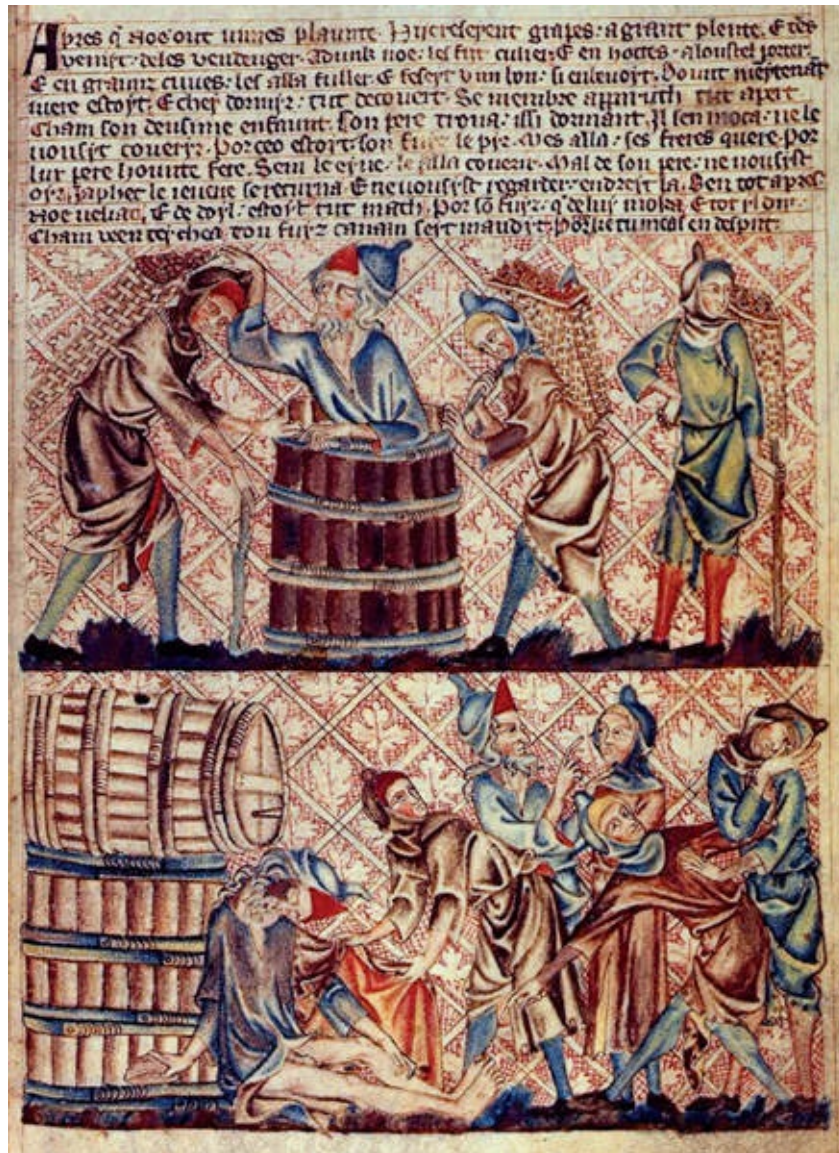 Apres q̄ Noe out vines plaunte. crescent grapes. a graunt plente. E
de les vendenger. Adunk noe. les fit cuiler. E en hottes. a loustel porter.
E en graunz cuves. les alla fuller. E feseyt vyn bon. si enbevoyt. Dount meytenant
ivere estoyt. E chey dormyr. tut decovert. Se membre apparuth tut apert
Cham son deusime enfaunt. son pere trova. issi dormant. Il sen moca. ne le
vousyt coveryr. Por ceo estoyt son fiuz le pyr. Mes alla. ses freres quere. Por
lur pere hounte fere. Sem le eyne. le alla coverir. Mal de son pere. ne vousyst
oyr. Japhet le ieuene se returna E ne vousyst regarder. endreyt la. Ben tot apres
Noe veliad. E de doyl. estoyt tut math. Por sō fuyz. q̄ de luy moka. E tot
Cham ton fuyz canaan seyt maudyt. Por ke tu me as en despit.